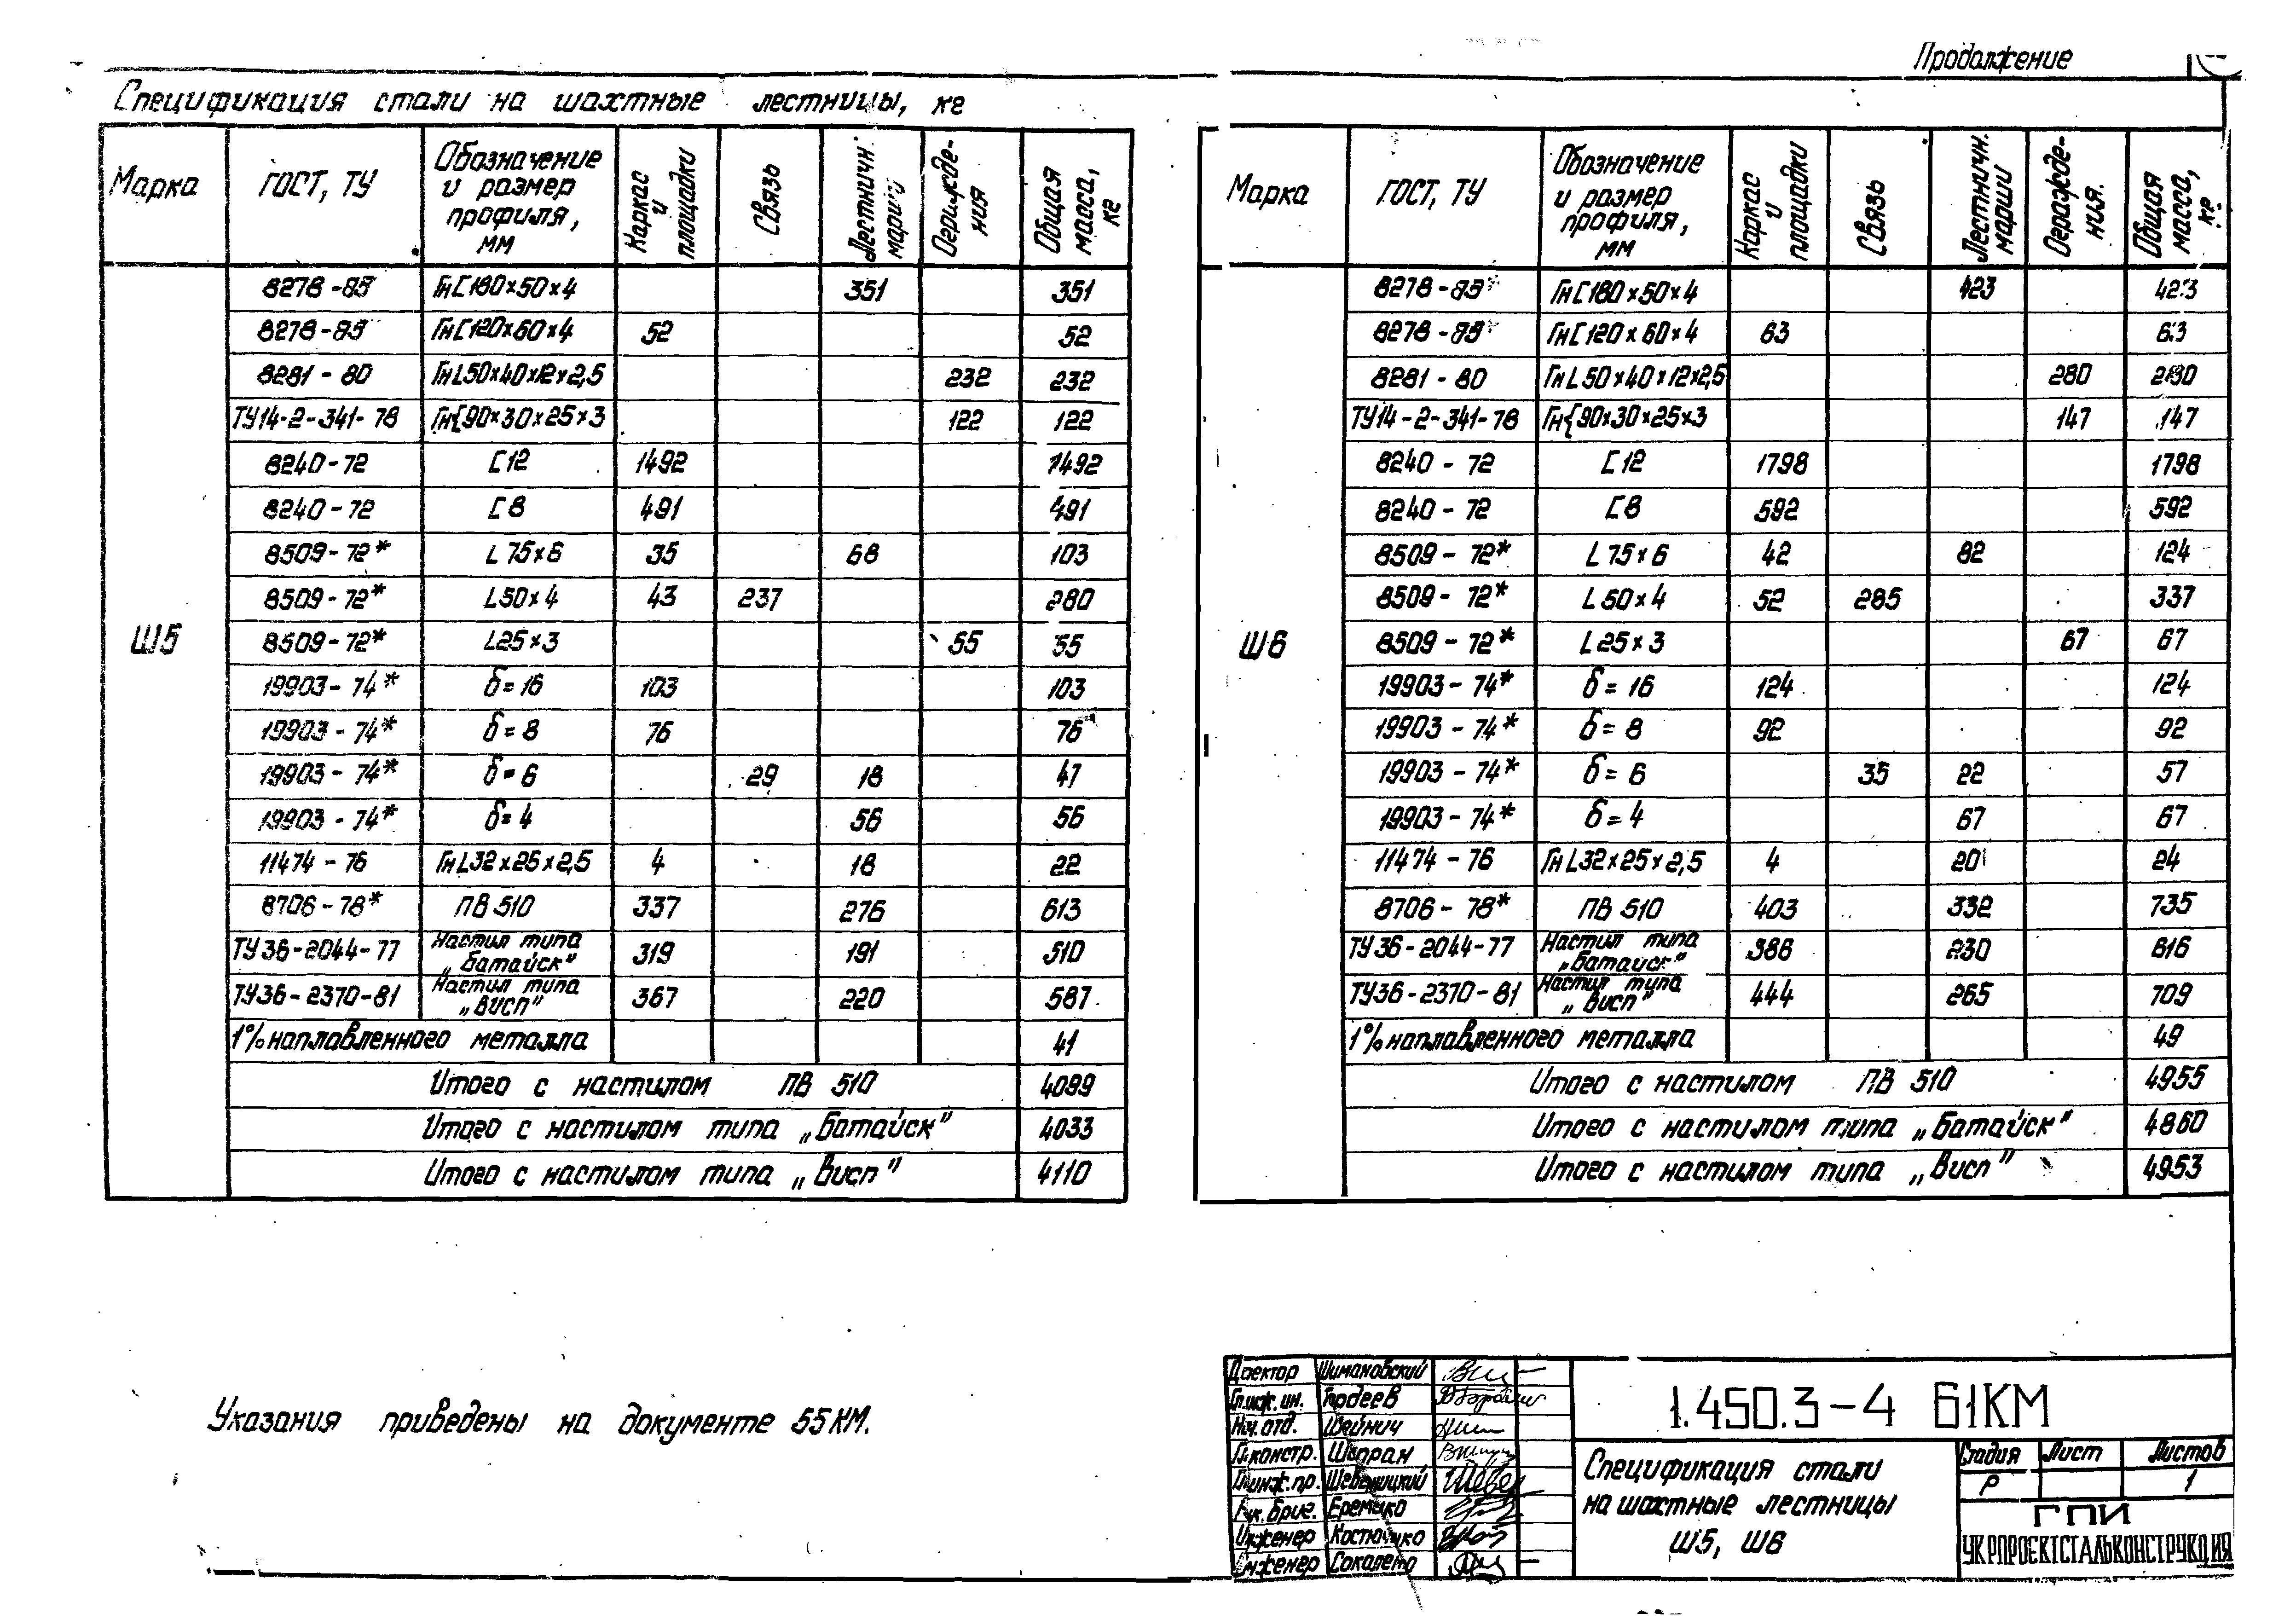 Продолжение
Спецификация стали на шахтные лестницы, кг
Марка ГОСТ, ТУ Обозначение и размер профиля, мм Каркас и площадки Связь Лестничн. марши Огражде-ния Общая масса, кг
Ш5
8278-83* Гн[180×50×4 351 351
8278-83* Гн[120×60×4 52 52
8281-80 ГнL50×40×12×2,5 232 232
ТУ14-2-341-78 Гн{90×30×25×3 122 122
8240-72 [12 1492 1492
8240-72 [8 491 491
8509-72* L75×6 35 68 103
8509-72* L50×4 43 237 280
8509-72* L25×3 55 55
19903-74* δ=16 103 103
19903-74* δ=8 76 76
19903-74* δ=6 29 18 47
19903-74* δ=4 56 56
11474-76 ГнL32×25×2,5 4 18 22
8706-78* ПВ 510 337 276 613
ТУ36-2044-77 Настил типа „Батайск" 319 191 510
ТУ36-2370-81 Настил типа „Висп" 367 220 587
1% наплавленного металла 41
Итого с настилом ПВ 510 4099
Итого с настилом типа „Батайск" 4033
Итого с настилом типа „Висп" 4110
Марка ГОСТ, ТУ Обозначение и размер профиля, мм Каркас и площадки Связь Лестничн. марши Огражде-ния. Общая масса, кг
Ш6
8278-83* Гн[180×50×4 423 423
8278-83* Гн[120×60×4 63 63
8281-80 ГнL50×40×12×2,5 280 280
ТУ14-2-341-78 Гн{90×30×25×3 147 147
8240-72 [12 1798 1798
8240-72 [8 592 592
8509-72* L75×6 42 82 124
8509-72* L50×4 52 285 337
8509-72* L25×3 67 67
19903-74* δ=16 124 124
19903-74* δ=8 92 92
19903-74* δ=6 35 22 57
19903-74* δ=4 67 67
11474-76 ГнL32×25×2,5 4 20 24
8706-78* ПВ 510 403 332 735
ТУ36-2044-77 Настил типа „Батайск" 386 230 616
ТУ36-2370-81 Настил типа „Висп" 444 265 709
1% наплавленного металла 49
Итого с настилом ПВ 510 4955
Итого с настилом типа „Батайск" 4860
Итого с настилом типа „Висп" 4953
Указания приведены на документе 55КМ.
Директор Шимановский
Гл.инж.ин. Гордеев
Нач.отд. Шейнич
Гл.констр. Шапран
Гл.инж.пр. Шевеницкий
Рук.бриг. Еремько
Инженер Костюченко
Инженер
1.450.3-4 61КМ
Спецификация стали
на шахтные лестницы
Ш5, Ш6
Стадия Лист Листов
Р 1
ГПИ
УКРПРОЕКТСТАЛЬКОНСТРУКЦИЯ